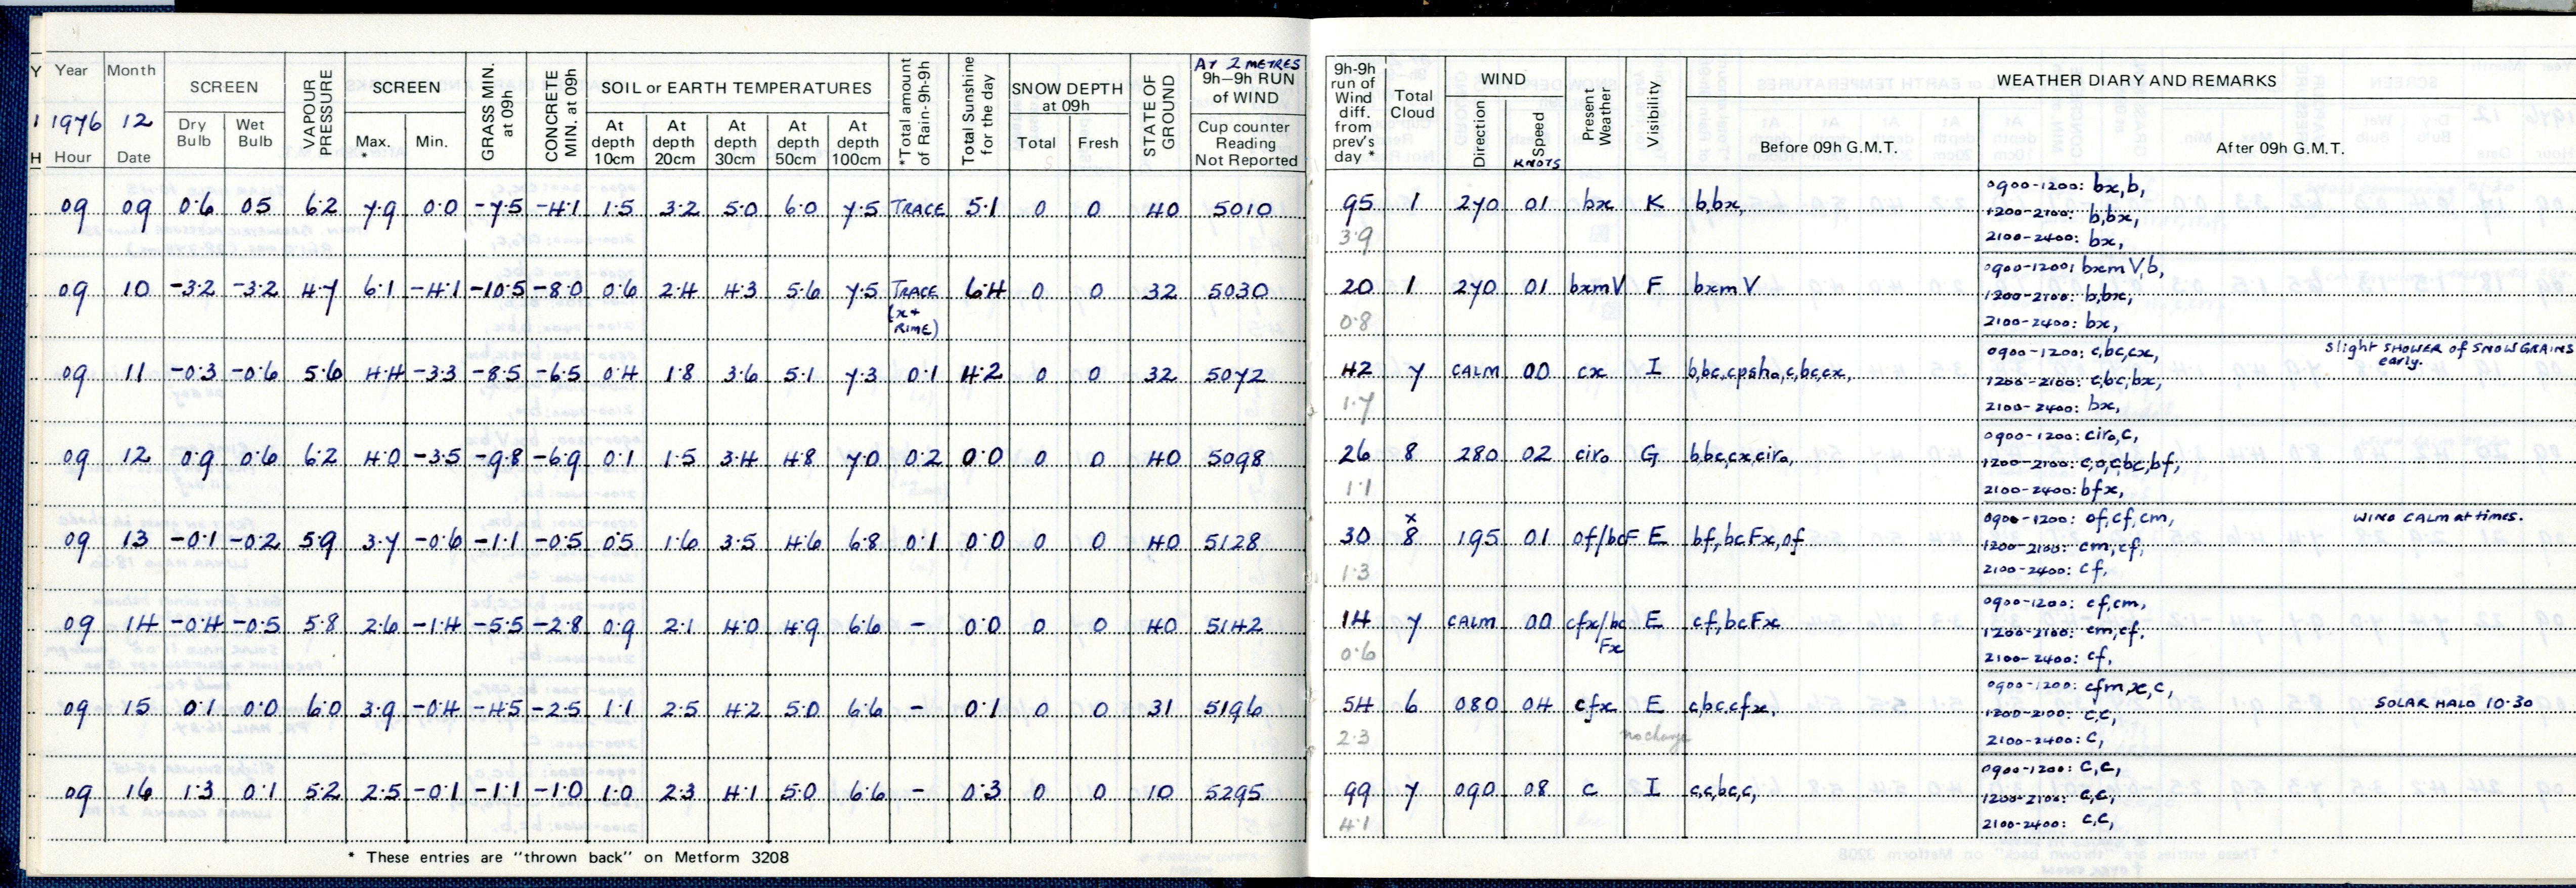 Y Year Month SCREEN VAPOUR PRESSURE SCREEN GRASS MIN. at 09h CONCRETE MIN. at 09h SOIL or EARTH TEMPERATURES *Total amount of Rain-9h-9h Total Sunshine for the day SNOW DEPTH at 09h STATE OF GROUND AT 2 METRES 9h–9h RUN of WIND
1 1976 12 Dry Bulb Wet Bulb Max. * Min. At depth 10cm At depth 20cm At depth 30cm At depth 50cm At depth 100cm Total Fresh Cup counter Reading Not Reported
H Hour Date
9h-9h run of Wind diff. from prev's day * Total Cloud WIND Direction Speed KNOTS Present Weather Visibility WEATHER DIARY AND REMARKS
Before 09h G.M.T. After 09h G.M.T.
09 09 0.6 0.5 6.2 7.9 0.0 -7.5 -4.1 1.5 3.2 5.0 6.0 7.5 TRACE 5.1 0 0 40 5010 95 1 270 01 bx K b,bx, 0900-1200: bx,b,
1200-2100: b,bx,
3.9 2100-2400: bx,
09 10 -3.2 -3.2 4.7 6.1 -4.1 -10.5 -8.0 0.6 2.4 4.3 5.6 7.5 TRACE 6.4 0 0 32 5030 20 1 270 01 bxmV F bxmV 0900-1200: bxmV,b,
(x+ RIME) 1200-2100: b,bx,
0.8 2100-2400: bx,
09 11 -0.3 -0.6 5.6 4.4 -3.3 -8.5 -6.5 0.4 1.8 3.6 5.1 7.3 0.1 4.2 0 0 32 5072 42 7 CALM 00 cx I b,bc,cpsho,c,bc,cx, 0900-1200: c,bc,cx, Slight SHOWER of SNOW GRAINS early.
1200-2100: c,bc,bx,
1.7 2100-2400: bx,
09 12 0.9 0.6 6.2 4.0 -3.5 -9.8 -6.9 0.1 1.5 3.4 4.8 7.0 0.2 0.0 0 0 40 5098 26 8 280 02 ciro G b,bc,cx,ciro, 0900-1200: ciro,c,
1200-2100: c,o,c,bc,bf,
1.1 2100-2400: bfx,
09 13 -0.1 -0.2 5.9 3.7 -0.6 -1.1 -0.5 0.5 1.6 3.5 4.6 6.8 0.1 0.0 0 0 40 5128 30 x 8 195 01 of/bcF E bf,bcFx,of 0900-1200: of,cf,cm, WIND CALM at times.
1200-2100: cm,cf,
1.3 2100-2400: cf,
09 14 -0.4 -0.5 5.8 2.6 -1.4 -5.5 -2.8 0.9 2.1 4.0 4.9 6.6 - 0.0 0 0 40 5142 14 7 CALM 00 cfx/bc Fx E cf,bcFx 0900-1200: cf,cm,
1200-2100: cm,cf,
0.6 2100-2400: cf,
09 15 0.1 0.0 6.0 3.9 -0.4 -4.5 -2.5 1.1 2.5 4.2 5.0 6.6 - 0.1 0 0 31 5196 54 6 080 04 cfx E c,bc,cfx, 0900-1200: cfm,x,c, SOLAR HALO 10.30
1200-2100: c,c,
2.3 no change 2100-2400: c,
09 16 1.3 0.1 5.2 2.5 -0.1 -1.1 -1.0 1.0 2.3 4.1 5.0 6.6 - 0.3 0 0 10 5295 99 7 090 08 c I c,c,bc,c, 0900-1200: c,c,
1200-2100: c,c,
4.1 2100-2400: c,c,
* These entries are "thrown back" on Metform 3208